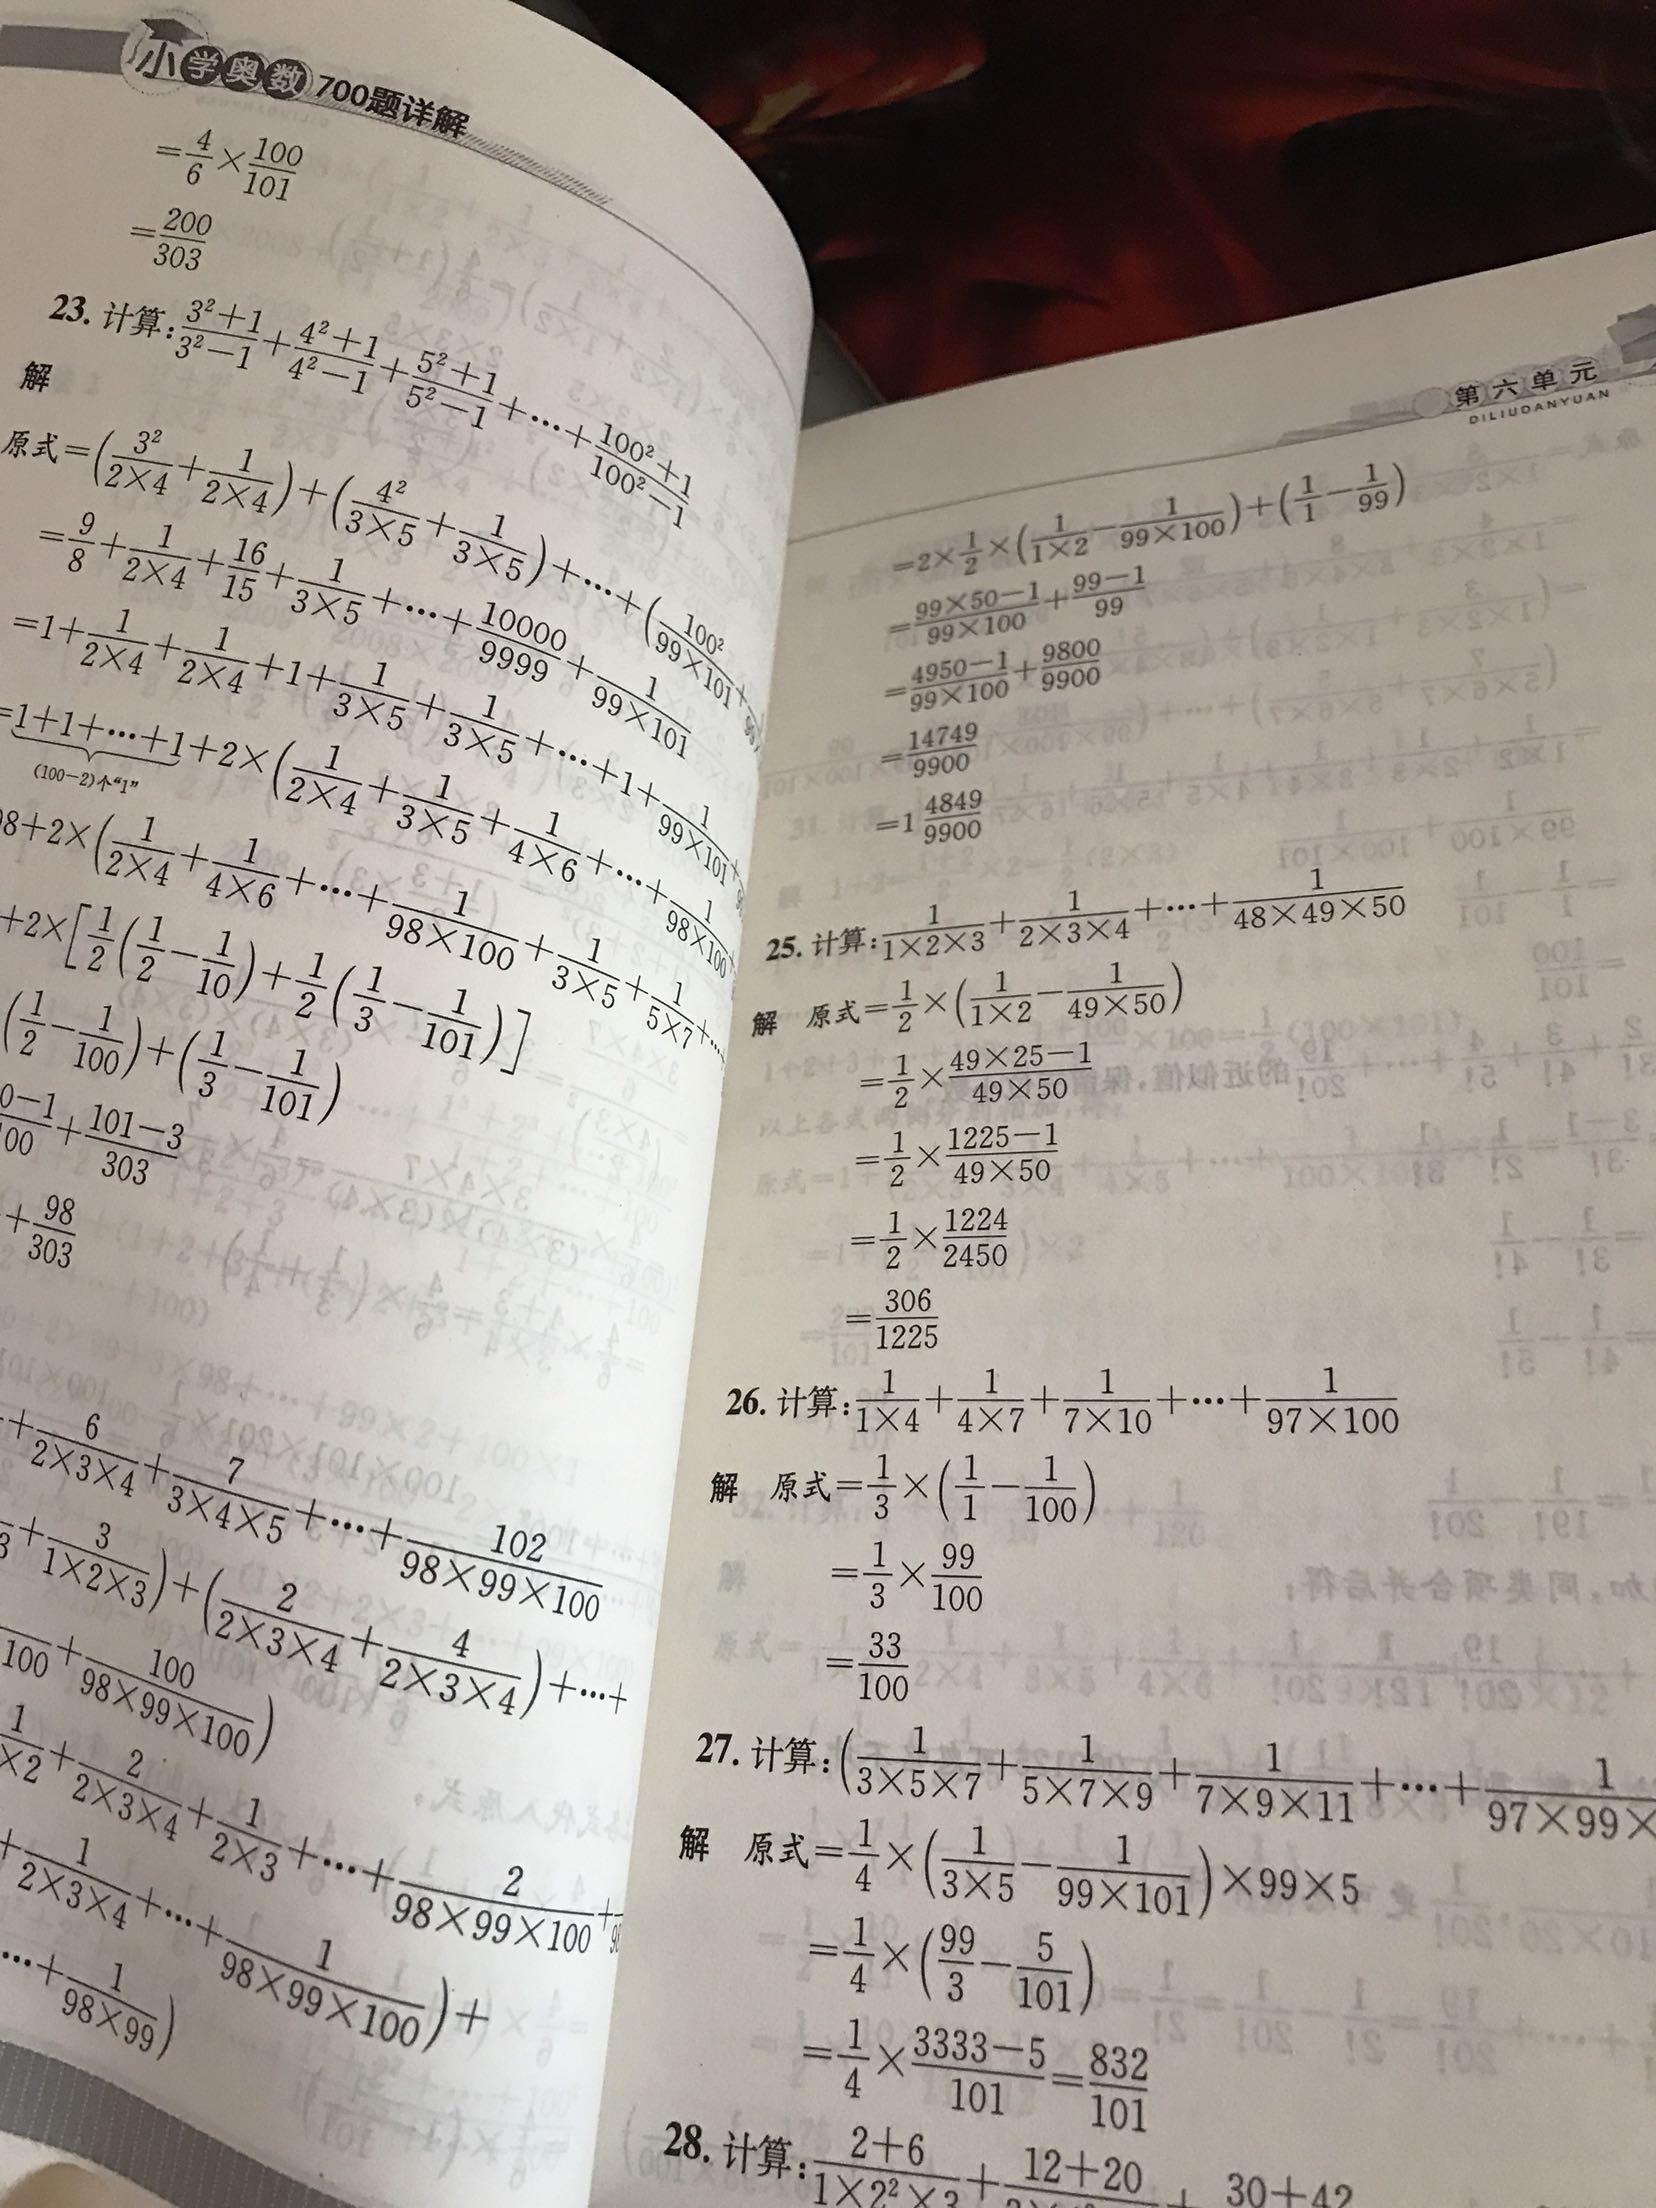 小学奥数700题详解
=4/6×100/101
=200/303
23. 计算:(3²+1)/(3²-1)+(4²+1)/(4²-1)+(5²+1)/(5²-1)+…+(100²+1)/(100²-1)
解
原式=(3²/(2×4)+1/(2×4))+(4²/(3×5)+1/(3×5))+…+(100²/(99×101)+
=9/8+1/(2×4)+16/15+1/(3×5)+…+10000/9999+1/(99×101)
=1+1/(2×4)+1/(2×4)+1+1/(3×5)+1/(3×5)+…+1+1/(99×101)+
=1+1+…+1+2×(1/(2×4)+1/(3×5)+1/(4×6)+…+1/(98×100)+
(100-2)个“1”
8+2×(1/(2×4)+1/(4×6)+…+1/(98×100)+1/(3×5)+1/(5×7)+…
+2×[1/2(1/2-1/10)+1/2(1/3-1/101)]
(1/2-1/100)+(1/3-1/101)
0-1/00+(101-3)/303
+98/303
+6/(2×3×4)+7/(3×4×5)+…+102/(98×99×100)
3+3/(1×2×3))+(2/(2×3×4)+4/(2×3×4))+…+
100+100/(98×99×100))
1/×2+2/(2×3×4)+1/(2×3)+…+2/(98×99×100)+
+1/(2×3×4)+…+1/(98×99×100))+
…+1/(98×99))
第六单元
DILIUDANYUAN
=2×1/2×(1/(1×2)-1/(99×100))+(1/1-1/99)
=(99×50-1)/(99×100)+(99-1)/99
=(4950-1)/(99×100)+9800/9900
=14749/9900
=1 4849/9900
25. 计算:1/(1×2×3)+1/(2×3×4)+…+1/(48×49×50)
解 原式=1/2×(1/(1×2)-1/(49×50))
=1/2×(49×25-1)/(49×50)
=1/2×(1225-1)/(49×50)
=1/2×1224/2450
=306/1225
26. 计算:1/(1×4)+1/(4×7)+1/(7×10)+…+1/(97×100)
解 原式=1/3×(1/1-1/100)
=1/3×99/100
=33/100
27. 计算:(1/(3×5×7)+1/(5×7×9)+1/(7×9×11)+…+1/(97×99×
解 原式=1/4×(1/(3×5)-1/(99×101))×99×5
=1/4×(99/3-5/101)
=1/4×(3333-5)/101=832/101
28. 计算:(2+6)/(1×2²×3)+12+20+30+42